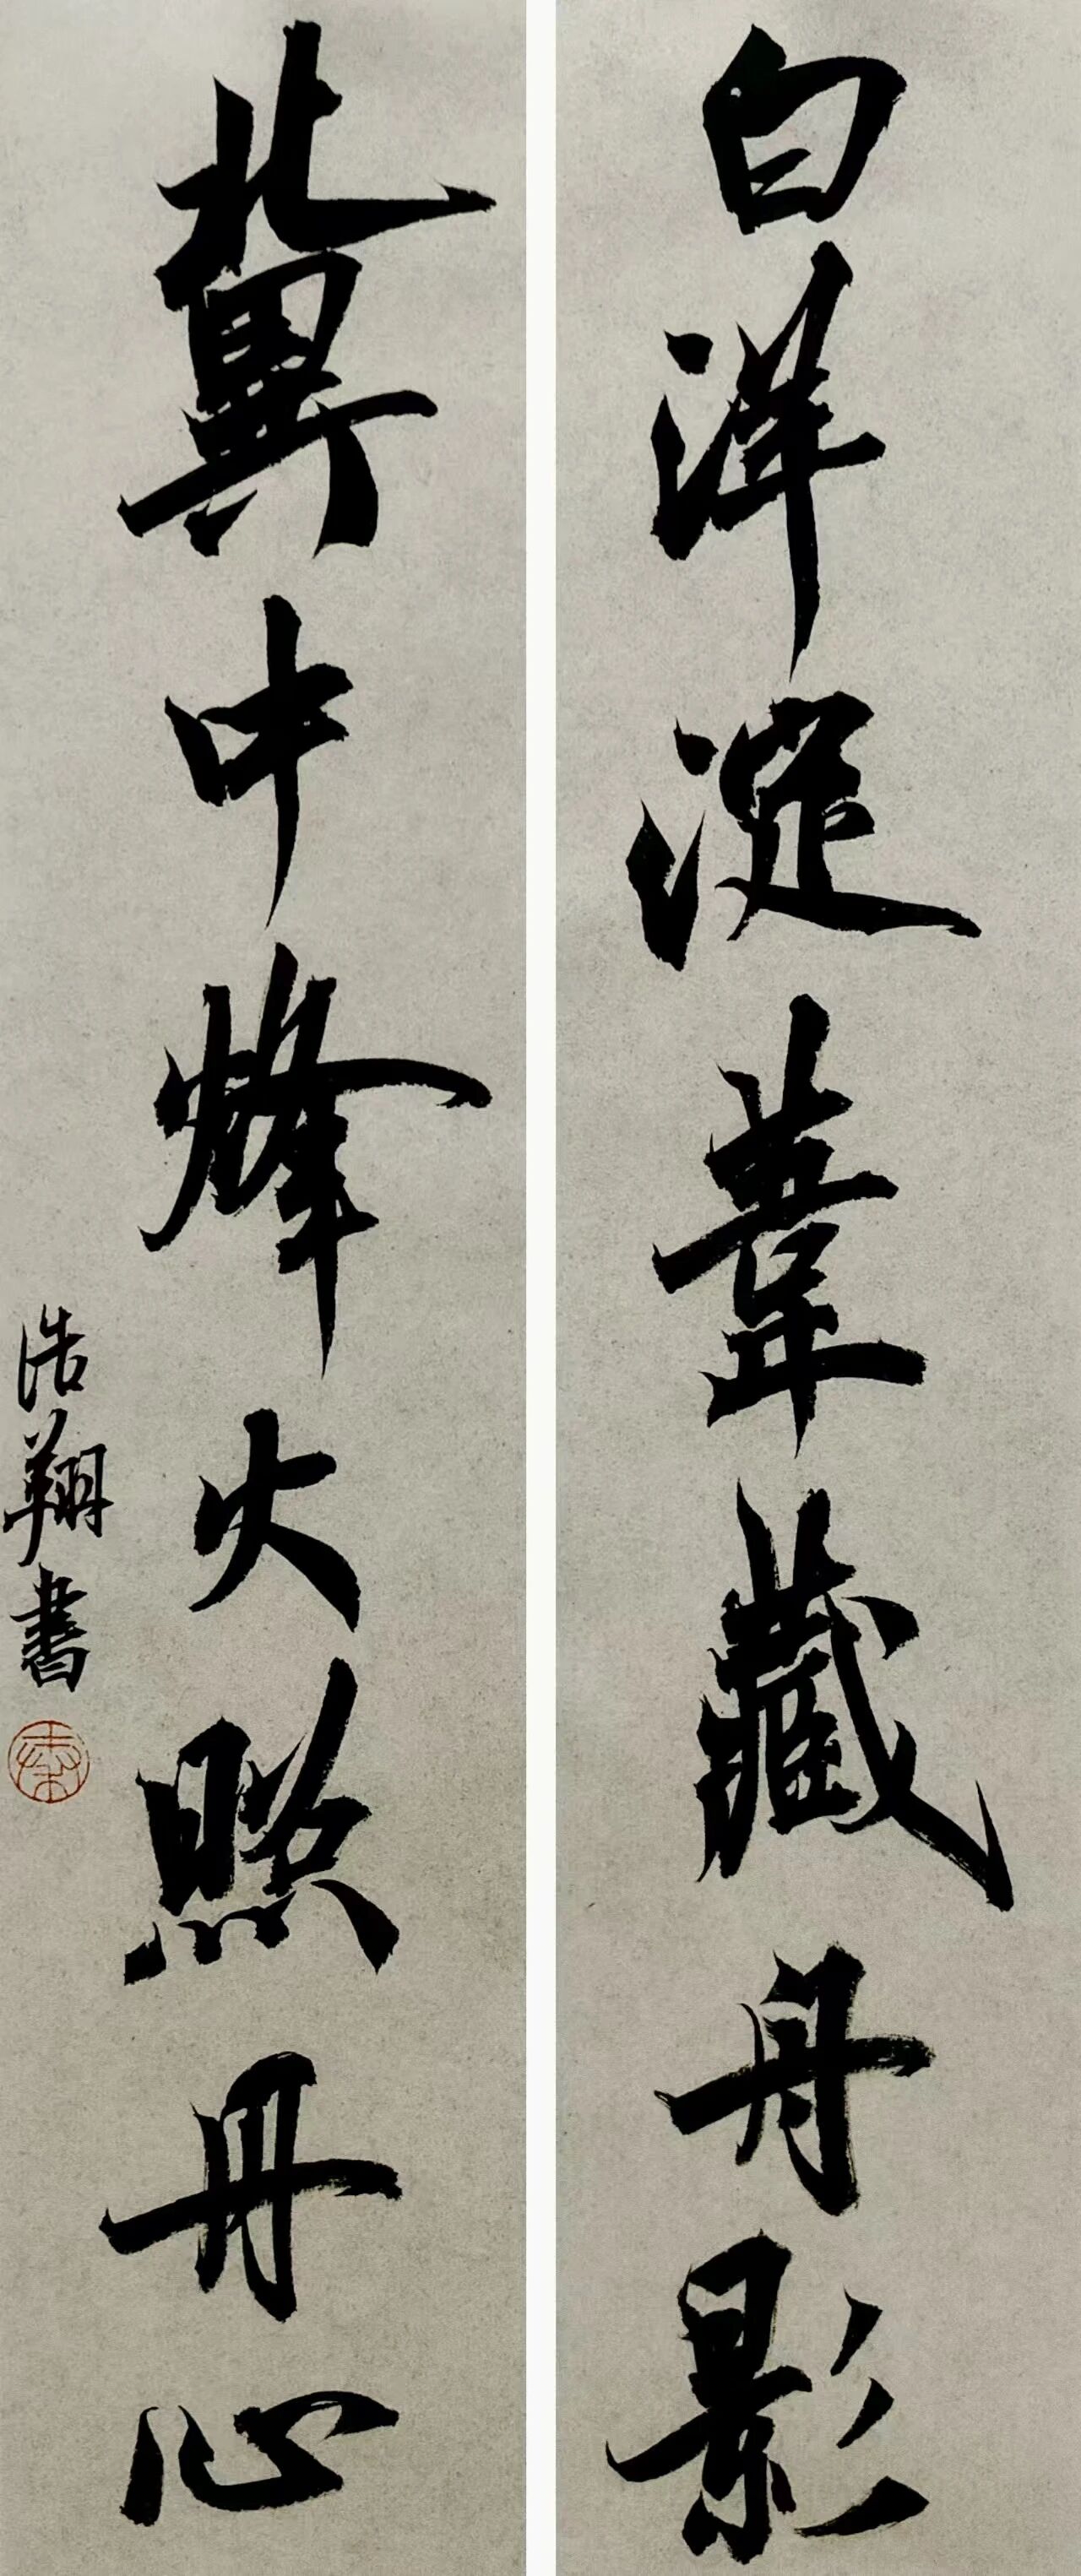 白洋淀葦藏舟影
冀中烽火照丹心
浩翔書